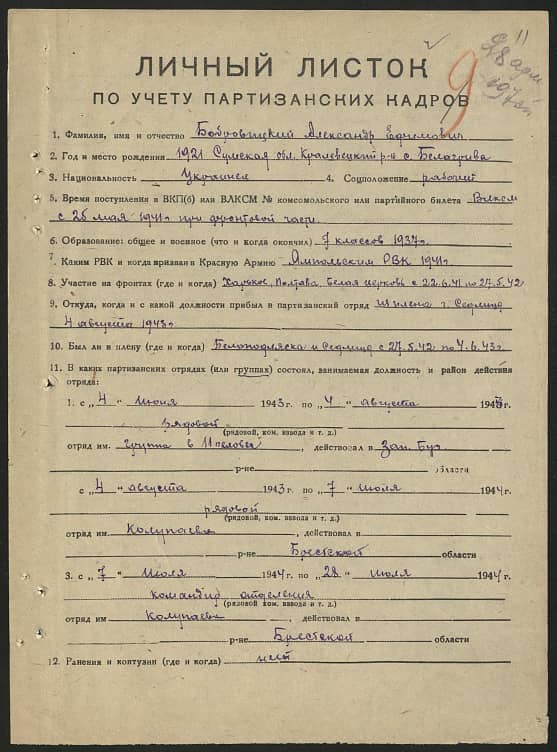 11
ЛИЧНЫЙ ЛИСТОК
ПО УЧЕТУ ПАРТИЗАНСКИХ КАДРОВ
9
1. Фамилия, имя и отчество Бобровицкий Александр Ефимович
2. Год и место рождения 1921 Сумская обл. Кралевецкий р-н с. Белагрива
3. Национальность Украинец 4. Соцположение рабочий
5. Время поступления в ВКП(б) или ВЛКСМ № комсомольского или партийного билета Влксм
с 25 мая 1941г при фронтовой части.
6. Образование: общее и военное (что и когда окончил) 7 классов 1937г.
7. Каким РВК и когда призван в Красную Армию Ямпольским РВК 1941г.
8. Участие на фронтах (где и когда) Харьков, Полтава, Белая церковь с 22.6.41 по 27.5.42
9. Откуда, когда и с какой должности прибыл в партизанский отряд из плена г. Седлице
4 августа 1943г
10. Был ли в плену (где и когда) Белоподляска и Седлице с 27.5.42 по 4.6.43г.
11. В каких партизанских отрядах (или группах) состоял, занимаемая должность и район действия
отряда:
1. с „4" июня 1943 г. по „4" августа 1943г.
рядовой
(рядовой, ком. взвода и т. д.)
отряд им. группа в 11 человек, действовал в Зап. Буг
р-не области
с „4" августа 1943 г. по „7" июля 1944г.
рядовой
(рядовой, ком. взвода и т. д.)
отряд им. Колупаева, действовал в
р-не Брестской области
3. с „7" июля 1944 г. по „28" июля 1944г.
командир отделения
(рядовой, ком. взвода и т. д.)
отряд им Колупаева, действовал в
р-не Брестской области
12. Ранения и контузии (где и когда) нет